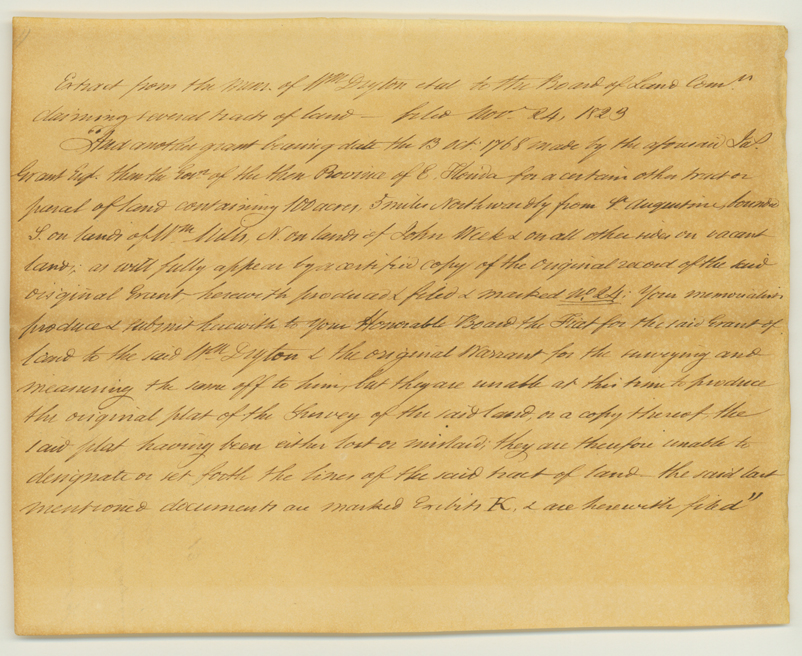 Extract from the Mem. of Wm Dryton et al to the Board of Land Comrs
claiming several tracts of land – filed Nov. 24, 1823
"And another grant bearing date the 13 oct 1768 made by the aforesaid Jas.
Grant Esqr. then the Govr. of the then Province of E. Florida for a certain other tract or
parcel of land containing 100 acres, 3 miles Northwardly from St Augustine, bounded
S. on lands of Wm Mills, N. on lands of John Week & on all other sides on vacant
land; as will fully appear by a certified copy of the original record of the said
original Grant herewith produced & filed & marked No. 24: Your memorialists
produce & submit herewith to your Honorable Board the Fiat for the said Grant of
land to the said Wm Dryton & the original Warrant for the surveying and
measuring the same off to him, but they are unable at this time to produce
the original plat of the Survey of the said land, or a copy thereof, the
said plat having been either lost or mislaid; they are therefore unable to
designate or set forth the lines of the said tract of land – the said last
mentioned documents are marked Exibits K. & are herewith filed"